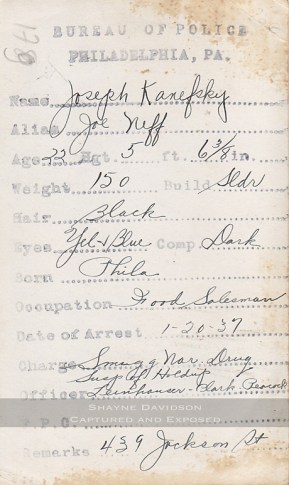 1789
BUREAU OF POLICE
PHILADELPHIA, PA.
Name Joseph Kanefsky
Alias Joe Neff
Age 22 Hgt. 5 ft. 6 3/8 in.
Weight 150 Build Sldr
Hair Black
Eyes Yel & Blue Comp. Dark
Born Phila
Occupation Food Salesman
Date of Arrest 1-20-37
Charge Smugg Nar. Drug
Susp of Holdup
Officer Clark Peacock
SHAYNE DAVIDSON
CAPTURED AND EXPOSED
Remarks 439 Jackson St